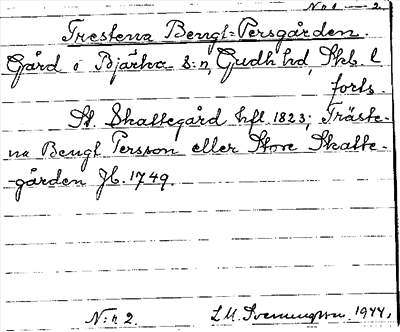 N:r 1 - 2.
Trestena Bengt-Persgården.
Gård i Bjärka s:n, Gudh. hd, Skb. l
forts.
St. Skattegård hfl 1823; Träste-
na Bengt Persson eller Store Skatte-
-gården Jb. 1749.
N:r 2. L.M. Svenungsson 1944.